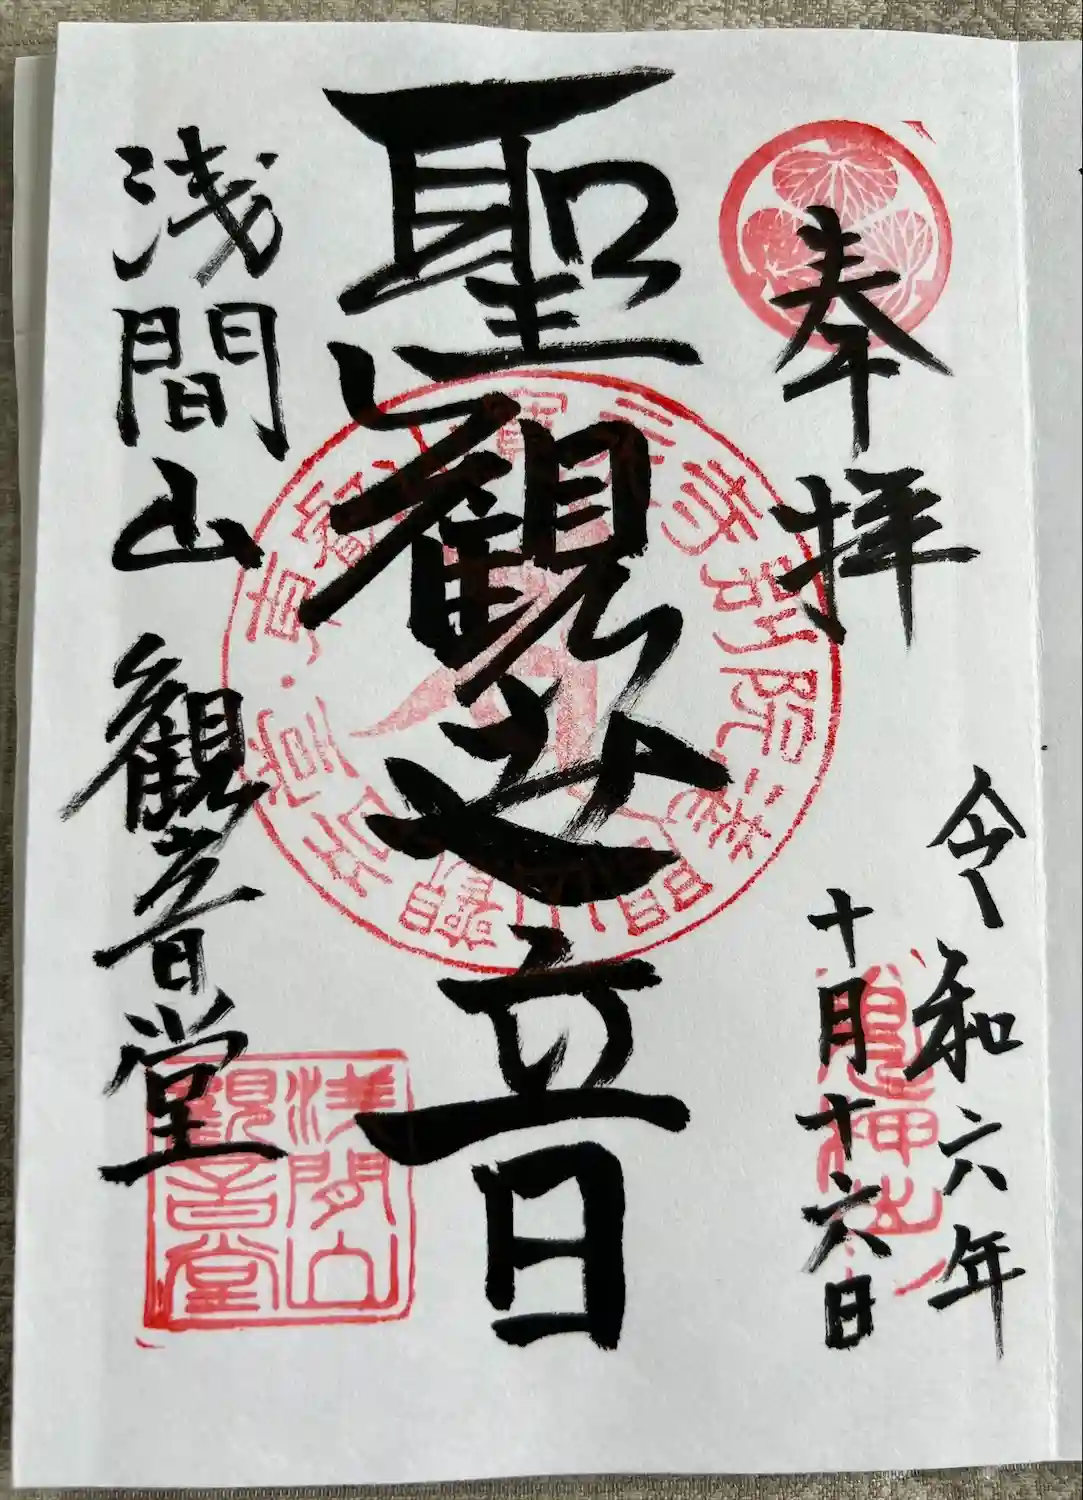 奉拝
令和六年
十月十六日
聖観世音
浅間山観音堂
浅間山
観音堂